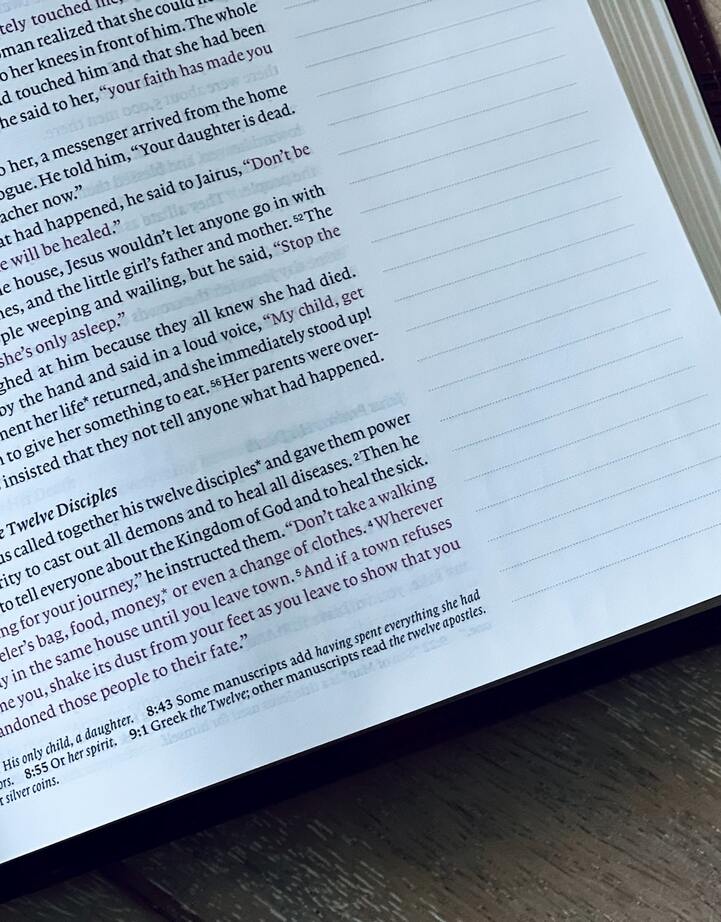 touched me,
man realized that she could
o her knees in front of him. The whole
d touched him and that she had been
he said to her, “your faith has made you
o her, a messenger arrived from the home
ogue. He told him, “Your daughter is dead.
acher now.”
at had happened, he said to Jairus, “Don’t be
e will be healed.”
e house, Jesus wouldn’t let anyone go in with
nes, and the little girl’s father and mother. 52The
ple weeping and wailing, but he said, “Stop the
she’s only asleep.”
ghed at him because they all knew she had died.
by the hand and said in a loud voice, “My child, get
nent her life* returned, and she immediately stood up!
n to give her something to eat. 56Her parents were over-
insisted that they not tell anyone what had happened.
e Twelve Disciples
us called together his twelve disciples* and gave them power
rity to cast out all demons and to heal all diseases. 2Then he
to tell everyone about the Kingdom of God and to heal the sick.
ng for your journey,” he instructed them. “Don’t take a walking
eler’s bag, food, money,* or even a change of clothes. 4Wherever
y in the same house until you leave town. 5And if a town refuses
ne you, shake its dust from your feet as you leave to show that you
andoned those people to their fate.”
His only child, a daughter. 8:43 Some manuscripts add having spent everything she had
ors. 8:55 Or her spirit. 9:1 Greek the Twelve; other manuscripts read the twelve apostles.
r silver coins.